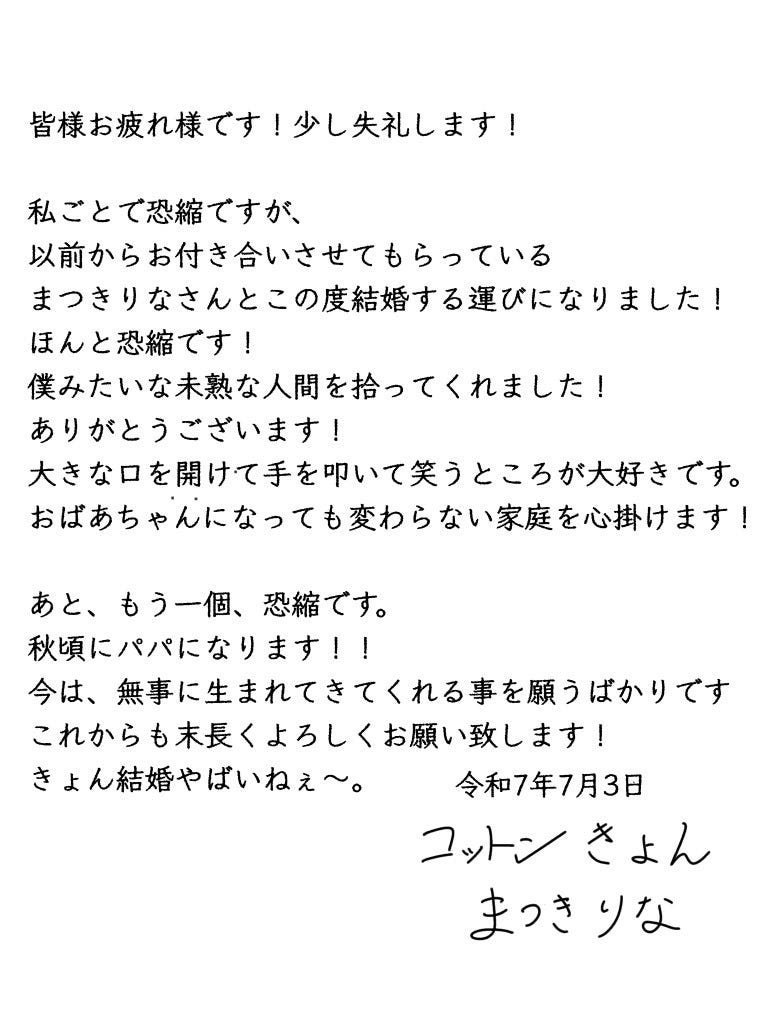 皆様お疲れ様です！少し失礼します！
私ごとで恐縮ですが、
以前からお付き合いさせてもらっている
まつきりなさんとこの度結婚する運びになりました！
ほんと恐縮です！
僕みたいな未熟な人間を拾ってくれました！
ありがとうございます！
大きな口を開けて手を叩いて笑うところが大好きです。
おばあちゃんになっても変わらない家庭を心掛けます！
あと、もう一個、恐縮です。
秋頃にパパになります！！
今は、無事に生まれてきてくれる事を願うばかりです
これからも末長くよろしくお願い致します！
きょん結婚やばいねぇ〜。
令和7年7月3日
コットン きょん
まつきりな